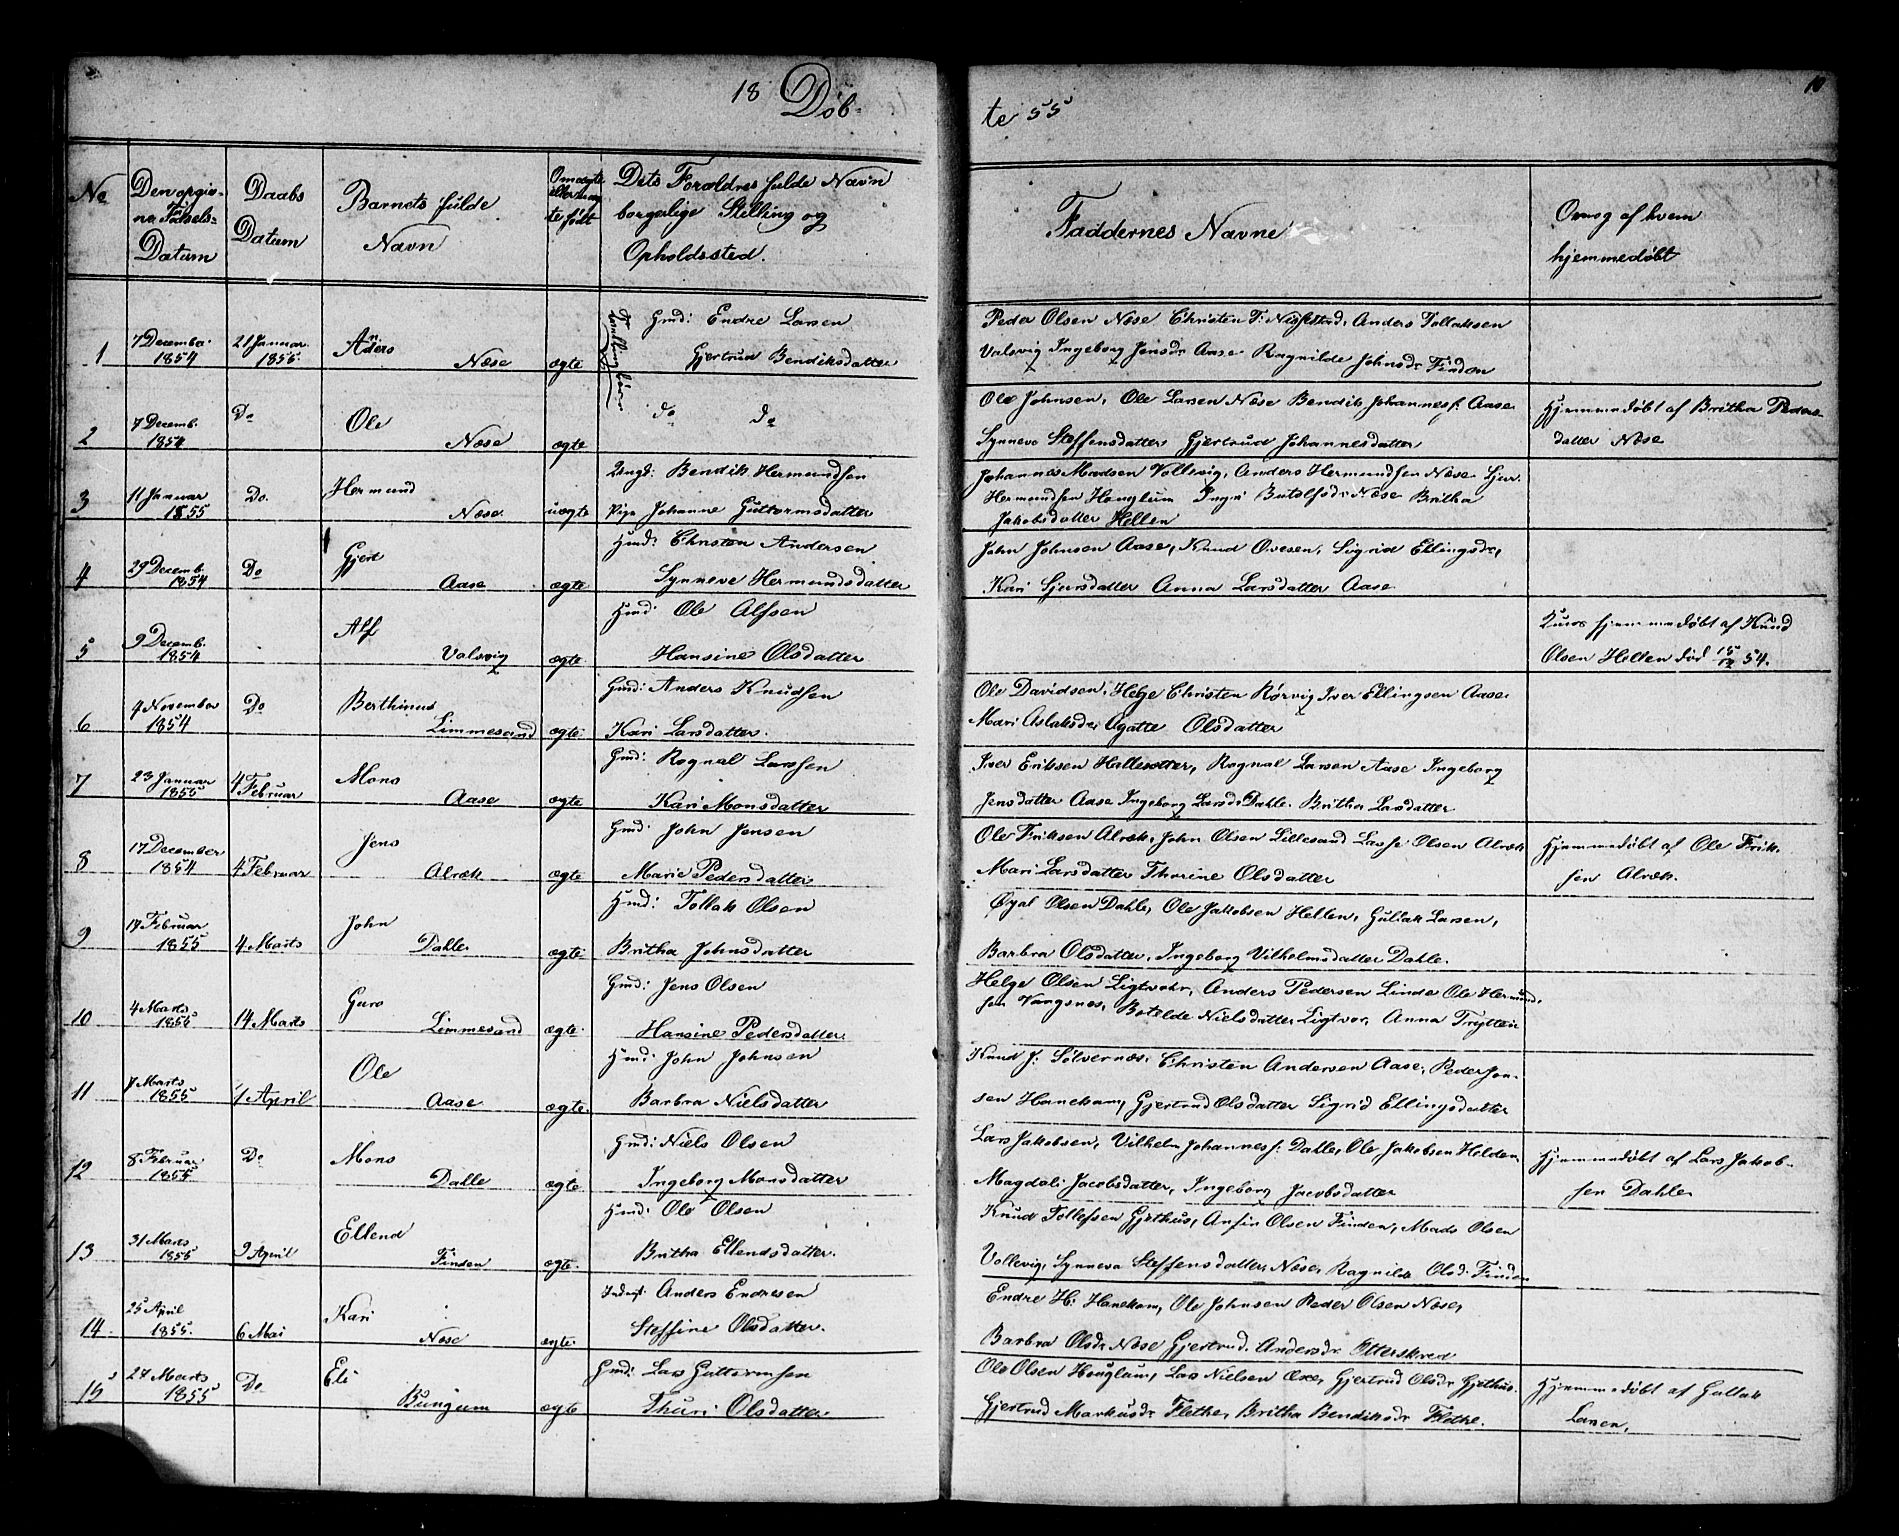 18 Döb-
te 55
10
No
Den opgiv-
ne Födsels-
Datum
Daabs
Datum
Barnets fulde
Navn
Om ægte
eller uæg-
te født
Dets Forældres fulde Navn
borgerlige Stilling og
Opholdssted.
Faddernes Navne
Om og af hvem
hjemmedøbt
1
7 Decembr.
1854
21 Januar
1855
Anders
Næse
ægte
Tvillingbörn
Gmd: Endre Larsen
Gjertrud Bendiksdatter
Peder Olsen Næse Christen T. Anders Tollaksen
Valsvig Ingeborg Jensdr Aase Ragnilde Johnsdr Finden
2
7 Decemb.
1854
Do
Ole
Næse
ægte
do do
Ole Johnsen, Ole Larsen Næse Bendik Johannesf. Aase
Synneve Steffensdatter Gjertrud Johannesdatter
Hjemmedøbt af Britha Peders-
datter Næse
3
11 Januar
1855
Do.
Hermund
Næse
uægte
Ungk: Bendik Hermundsen
Pige Johanne Guttormsdatter
Johannes Madsen Vollevig, Anders Hermundsen Næse Sjur
Hermundsen Houglum Botolfsdr Næse Britha
Jakobsdatter Hellen
4
29 Decemb.
1854
Do
Gjert
Aase
ægte
Huusmd: Christen Andersen
Synneve Hermundsdatter
John Johnsen Aase, Knud Ovesen, Sigrid Ellingsdr,
Kari Sjursdatter Anna Larsdatter Aase
5
9 Decemb.
1854
Alf
Valsvig
ægte
Hmd: Ole Alfsen
Hansine Olsdatter
Kuns hjemmedøbt af Knud
Olsen Hellen død 15/12 54.
6
4 November
1854
Do
Berthinus
Limmesand
ægte
Gmd: Anders Knudsen
Kari Larsdatter.
Ole Davidsen, Helge Christen Rørvig Iver Ellingsen Aase
Mari Aslaksdr Agatte Olsdatter
7
23 Januar
1855
4 Februar
Mons
Aase
ægte
Gmd: Ragnal Larsen
Kari Monsdatter
Iver Eriksen Ragnal Larsen Aase Ingeborg
Jensdatter Aase Ingeborg Larsdr Dahle Britha Larsdatter
8
17 December
1854
4 Februar
Jens
Alræk
ægte
Gmd: John Jensen
Marie Pedersdatter
Ole Friksen Alræk, John Olsen Lillesand Lasse Olsen Alræk
Mari Larsdatter Thorine Olsdatter
Hjemmedøbt af Ole Frik-
sen Alræk.
9
17 Februar
1855
4 Marts
John
Dahle
ægte
Hmd: Tollak Olsen
Britha Johnsdatter
Olsen Dahle, Ole Jakobsen Hellen, Gullak Larsen,
Barbra Olsdatter, Ingeborg Vilhelmsdatter Dahle.
10
4 Marts
1855
14 Marts
Guro
Limmesand
ægte
Gmd: Jens Olsen
Hansine Pedersdatter
Helge Olsen Ligtvor, Anders Pedersen Linde Ole Hermund-
sen Vangsnes, Botelde Nielsdatter Ligtvor, Anna Trytten
11
7 Marts
1855
1 April
Ole
Aase
ægte
Hmd: John Johnsen
Barbra Nielsdatter
Knud J. Sølvernæs, Christen Andersen Aase, Peder Jon-
sen Hanekam, Gjertrud Olsdatter Sigrid Ellingsdatter
12
8 Februar
1855
Do
Mons
Dahle
ægte
Gmd: Niels Olsen
Ingeborg Monsdatter
Lars Jakobsen, Vilhelm Johannesf. Dahle, Ole Jakobsen Holden
Magdali Jacobsdatter, Ingeborg Jacobsdatter
Hjemmedøbt af Lars Jakob-
sen Dahle
13
31 Marts
1855
9 April
Ellend
Finden
ægte
Hmd: Ole Olsen
Britha Ellendsdatter.
Knud Tollefsen Gjethus, Anfin Olsen Finden, Mads Olsen
Vollevig, Synneva Steffensdatter Næse, Ragnilde Olsd. Finden
14
25 April
1855.
6 Mai
Kari
Næse
ægte
Anders Endresen
Steffine Olsdatter.
Endre H: Hanekam, Ole Johnsen Peder Olsen Næse,
Barbra Olsdr Næse Gjertrud Andersdr Otterskred
15
27 Marts
1855
Do
Eli
Bungum
ægte
Gmd: Lars Guttormsen
Thuri Olsdatter
Ole Olsen Houglum, Lars Nielsen Gjertrud Olsdr Gjethus.
Gjertrud Markusdr Flethe, Britha Bendiksdr Flethe.
Hjemmedøbt af Gullak
Larsen.